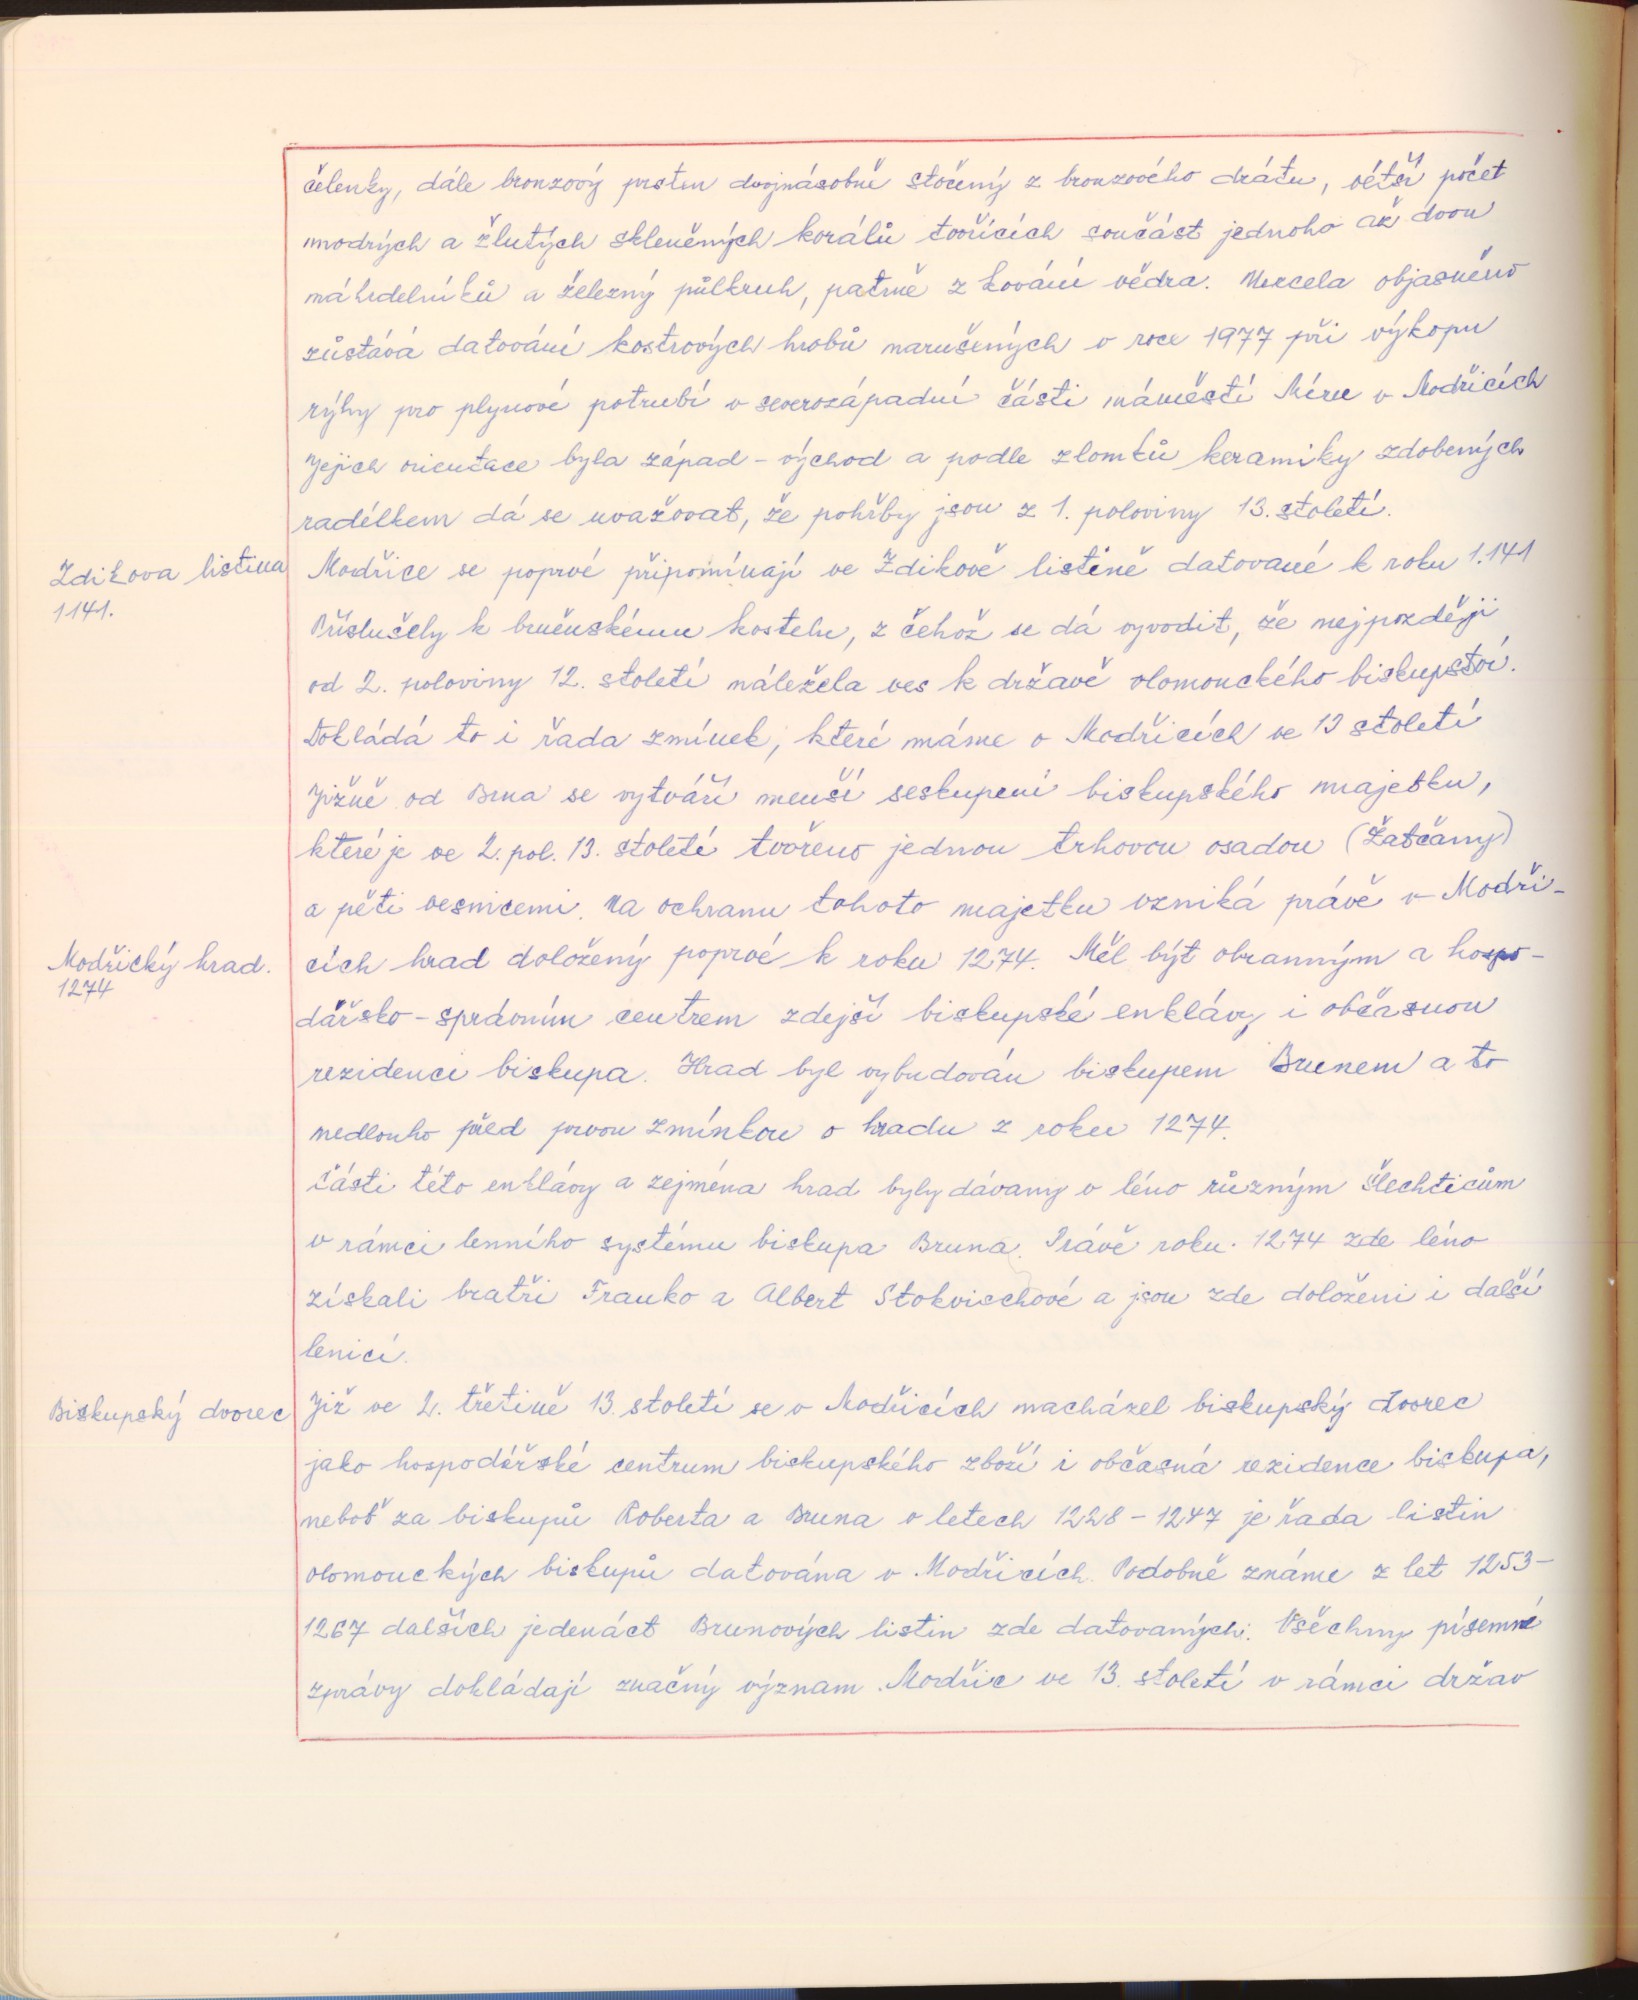 čelenky, dále bronzový prsten dvojnásobně stočený z bronzového drátu, větší počet
modrých a žlutých skleněných korálů tvořících součást jednoho až dvou
náhrdelníků a železný půlkruh, patrně z kování vědra. Nezcela objasněno
zůstává datování kostrových hrobů narušených v roce 1977 při výkopu
rýhy pro plynové potrubí v severozápadní části náměstí Míru v Modřicích
Jejich orientace byla západ - východ a podle zlomků keramiky zdobených
radélkem dá se uvažovat, že pohřby jsou z 1. poloviny 13. století.
Zdikova listina
1141.
Modřice se poprvé připomínají ve Zdikově listině datované k roku 1.141
Příslušely k brněnskému kostelu, z čehož se dá vyvodit, že nejpozději
od 2. poloviny 12. století náležela ves k državě olomouckého biskupství.
Dokládá to i řada zmínek, které máme o Modřicích ve 13 století
Jižně od Brna se vytváří menší seskupení biskupského majetku,
které je ve 2. pol. 13. století tvořeno jednou trhovou osadou (Žatčany)
a pěti vesnicemi. Na ochranu tohoto majetku vzniká právě v Modři-
Modřický hrad.
1274
cích hrad doložený poprvé k roku 1274. Měl být obranným a hospo-
dářsko - správním centrem zdejší biskupské enklávy i občasnou
rezidenci biskupa. Hrad byl vybudován biskupem Brunem a to
nedlouho před prvou zmínkou o hradu z roku 1274.
Části této enklávy a zejména hrad byly dávany v léno různým šlechticům
v rámci lenního systému biskupa Bruna. Právě roku. 1274 zde léno
získali bratři Franko a Albert Stokvicchové a jsou zde doloženi i další
leníci.
Biskupský dvorec
Již ve 2. třetině 13. století se v Modřicích nacházel biskupský dvorec
jako hospodářské centrum biskupského zboží i občasná rezidence biskupa,
neboť za biskupů Roberta a Bruna v letech 1228 - 1247 je řada listin
olomouckých biskupů datována v Modřicích. Podobně známe z let 1253 -
1267 dalších jedenáct Brunových listin zde datovaných. Všechny písemné
zprávy dokládají značný význam Modřic ve 13. století v rámci držav